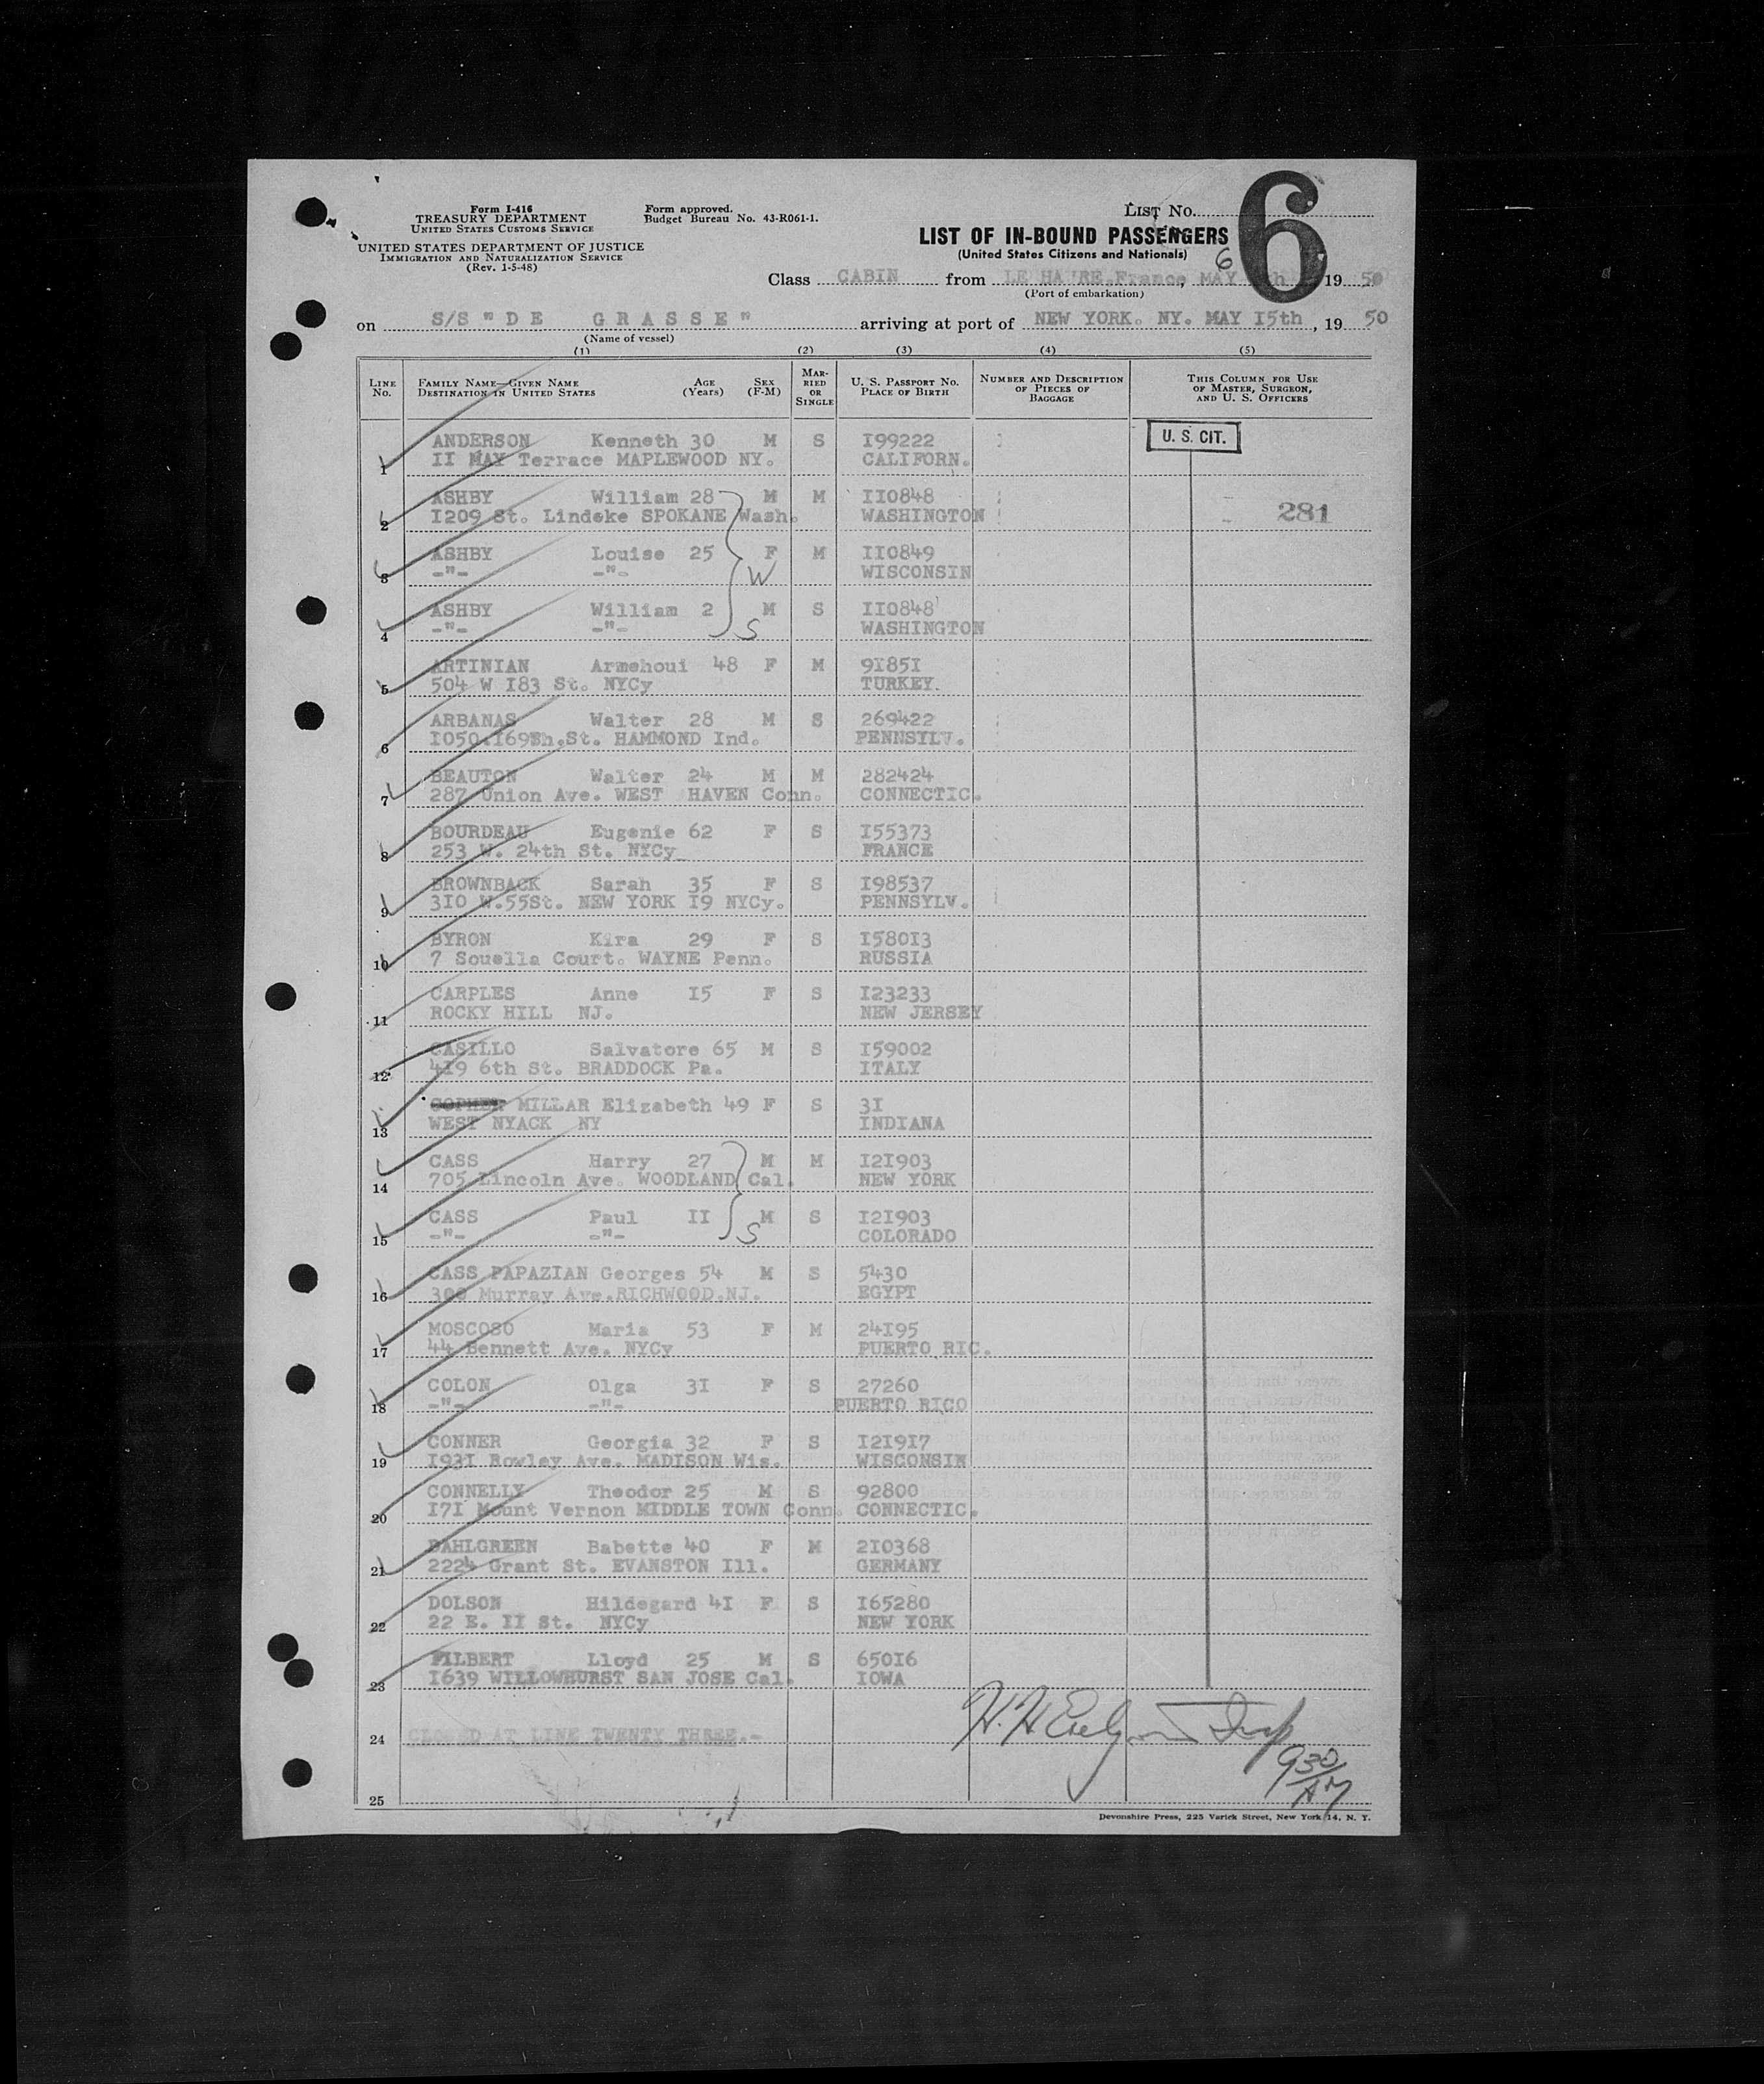 Form I-416
TREASURY DEPARTMENT
UNITED STATES CUSTOMS SERVICE
UNITED STATES DEPARTMENT OF JUSTICE
IMMIGRATION AND NATURALIZATION SERVICE
(Rev. 1-5-48)
Form approved.
Budget Bureau No. 43-R061-1.
LIST No. 6
LIST OF IN-BOUND PASSENGERS
(United States Citizens and Nationals) 6
Class CABIN from LE HAVRE.France, MAY 19 50
(Port of embarkation)
on S/S "DE GRASSE" arriving at port of NEW YORK. NY. MAY I5th, 19 50
(Name of vessel)
(1) (2) (3) (4) (5)
LINE No. FAMILY NAME—GIVEN NAME DESTINATION IN UNITED STATES AGE (Years) SEX (F-M) MARRIED OR SINGLE U. S. PASSPORT NO. PLACE OF BIRTH NUMBER AND DESCRIPTION OF PIECES OF BAGGAGE THIS COLUMN FOR USE OF MASTER, SURGEON, AND U. S. OFFICERS
ANDERSON Kenneth 30 M S I99222 U. S. CIT.
1 II MAY Terrace MAPLEWOOD NY. CALIFORN.
ASHBY William 28 M M II0848
2 I209 St. Lindeke SPOKANE Wash. WASHINGTON 281
ASHBY Louise 25 F M II0849
3 -"- -"- W WISCONSIN
ASHBY William 2 M S II0848
4 -"- -"- S WASHINGTON
ARTINIAN Armehoui 48 F M 9I85I
5 504 W I83 St. NYCy TURKEY.
ARBANAS Walter 28 M S 269422
6 I050.I69th.St. HAMMOND Ind. PENNSYLV.
BEAUTON Walter 24 M M 282424
7 287 Union Ave. WEST HAVEN Conn. CONNECTIC.
BOURDEAU Eugenie 62 F S I55373
8 253 W. 24th St. NYCy FRANCE
BROWNBACK Sarah 35 F S I98537
9 3I0 W.55St. NEW YORK I9 NYCy. PENNSYLV.
BYRON Kira 29 F S I580I3
10 7 Souella Court. WAYNE Penn. RUSSIA
CARPLES Anne I5 F S I23233
11 ROCKY HILL NJ. NEW JERSEY
CASILLO Salvatore 65 M S I59002
12 4I9 6th St. BRADDOCK Pa. ITALY
MILLAR Elizabeth 49 F S 3I
13 WEST NYACK NY INDIANA
CASS Harry 27 M M I2I903
14 705 Lincoln Ave. WOODLAND Cal. NEW YORK
CASS Paul II M S I2I903
15 -"- -"- S COLORADO
CASS PAPAZIAN Georges 54 M S 5430
16 300 Murray Ave.RICHWOOD.NJ. EGYPT
MOSCOSO Maria 53 F M 24I95
17 44 Bennett Ave. NYCy PUERTO RIC.
COLON Olga 3I F S 27260
18 -"- -"- PUERTO RICO
CONNER Georgia 32 F S I2I9I7
19 I93I Rowley Ave. MADISON Wis. WISCONSIN
CONNELLY Theodor 25 M S 92800
20 I7I Mount Vernon MIDDLE TOWN Conn. CONNECTIC.
DAHLGREEN Babette 40 F M 2I0368
21 2224 Grant St. EVANSTON Ill. GERMANY
DOLSON Hildegard 4I F S I65280
22 22 E. II St. NYCy NEW YORK
FILBERT Lloyd 25 M S 650I6
23 I639 WILLOWHURST SAN JOSE Cal. IOWA
24 CLOSED AT LINE TWENTY THREE.-
930
AM
25
Devonshire Press, 225 Varick Street, New York 14, N. Y.